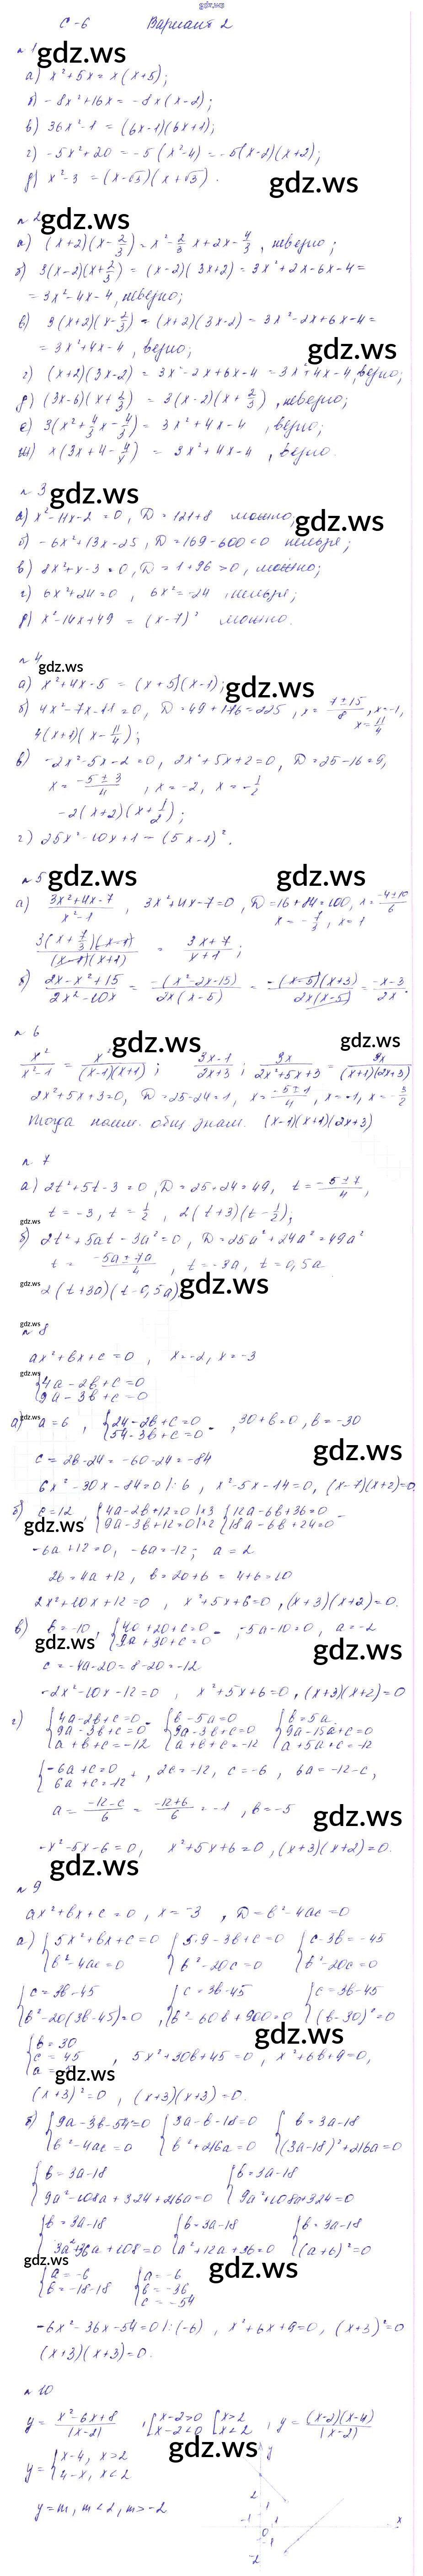 gdz.ws
С-6 Вариант 2
№ 1
gdz.ws
а) x² + 5x = x(x+5);
б) -8x² + 16x = -8x(x-2);
в) 36x² - 1 = (6x-1)(6x+1);
г) -5x² + 20 = -5(x²-4) = -5(x-2)(x+2);
д) x² - 3 = (x-√3)(x+√3).
gdz.ws
№ 2
gdz.ws
а) (x+2)(x-2/3) = x² - 2/3 x + 2x - 4/3, неверно;
б) 3(x-2)(x+2/3) = (x-2)(3x+2) = 3x² + 2x - 6x - 4 =
= 3x² - 4x - 4, неверно;
в) 3(x+2)(x-2/3) = (x+2)(3x-2) = 3x² - 2x + 6x - 4 =
= 3x² + 4x - 4, верно;
gdz.ws
г) (x+2)(3x-2) = 3x² - 2x + 6x - 4 = 3x² + 4x - 4, верно;
д) (3x-6)(x+2/3) = 3(x-2)(x+2/3), неверно;
е) 3(x² + 4/3 x - 4/3) = 3x² + 4x - 4, верно;
ж) x(3x + 4 - 4/x) = 3x² + 4x - 4, верно.
№ 3
gdz.ws
а) x² - 11x - 2 = 0, D = 121 + 8 можно,
gdz.ws
б) -6x² + 13x - 25, D = 169 - 600 < 0 нельзя;
в) 2x² + x - 3 = 0, D = 1 + 96 > 0, можно;
г) 6x² + 24 = 0, 6x² = -24, нельзя;
д) x² - 14x + 49 = (x-7)² можно.
№ 4
gdz.ws
а) x² + 4x - 5 = (x+5)(x-1);
gdz.ws
б) 4x² - 7x - 11 = 0, D = 49 + 176 = 225, x = (7 ± 15)/8, x = -1, x = 11/4
4(x+1)(x - 11/4);
в) -2x² - 5x - 2 = 0, 2x² + 5x + 2 = 0, D = 25 - 16 = 9,
x = (-5 ± 3)/4, x = -2, x = -1/2
-2(x+2)(x+1/2);
г) 25x² - 10x + 1 = (5x-1)².
№ 5
gdz.ws gdz.ws
а) (3x²+4x-7)/(x²-1), 3x² + 4x - 7 = 0, D = 16 + 84 = 100, x = (-4 ± 10)/6
x = -7/3, x = 1
3(x+7/3)(x-1)/((x-1)(x+1)) = (3x+7)/(x+1);
б) (2x-x²+15)/(2x²-10x) = -(x²-2x-15)/(2x(x-5)) = -(x-5)(x+3)/(2x(x-5)) = (-x-3)/(2x).
№ 6
gdz.ws gdz.ws
x²/(x²-1) = x²/((x-1)(x+1)); (3x-1)/(2x+3); 9x/(2x²+5x+3) = 9x/((x+1)(2x+3))
2x² + 5x + 3 = 0, D = 25 - 24 = 1, x = (-5 ± 1)/4, x = -1, x = -3/2
Тогда наим. общ. знам. (x-1)(x+1)(2x+3)
№ 7
а) 2t² + 5t - 3 = 0, D = 25 + 24 = 49, t = (-5 ± 7)/4,
t = -3, t = 1/2, 2(t+3)(t-1/2);
gdz.ws
б) 2t² + 5at - 3a² = 0, D = 25a² + 24a² = 49a²
gdz.ws
t = (-5a ± 7a)/4, t = -3a, t = 0,5a
gdz.ws
2(t+3a)(t-0,5a)
gdz.ws
gdz.ws
№ 8
ax² + bx + c = 0, x = -2, x = -3
gdz.ws
{4a - 2b + c = 0
9a - 3b + c = 0
gdz.ws
а) a = 6, {24 - 2b + c = 0
54 - 3b + c = 0 -, 30 + b = 0, b = -30
gdz.ws
c = 2b - 24 = -60 - 24 = -84
6x² - 30x - 84 = 0 |: 6, x² - 5x - 14 = 0, (x-7)(x+2) = 0
б) c = 12, {4a - 2b + 12 = 0 |·3
9a - 3b + 12 = 0 |·2 {12a - 6b + 36 = 0
18a - 6b + 24 = 0 -
gdz.ws
-6a + 12 = 0, -6a = -12; a = 2
2b = 4a + 12, b = 2a + 6 = 4 + 6 = 10
2x² + 10x + 12 = 0, x² + 5x + 6 = 0, (x+3)(x+2) = 0.
в) b = -10, {4a + 20 + c = 0
9a + 30 + c = 0 -, -5a - 10 = 0, a = -2
gdz.ws gdz.ws
c = -4a - 20 = 8 - 20 = -12
-2x² - 10x - 12 = 0, x² + 5x + 6 = 0, (x+3)(x+2) = 0
г) {4a - 2b + c = 0
9a - 3b + c = 0
a + b + c = -12 {b - 5a = 0
9a - 3b + c = 0
a + b + c = -12 {b = 5a
9a - 15a + c = 0
a + 5a + c = -12
{-6a + c = 0
6a + c = -12 +, 2c = -12, c = -6, 6a = -12 - c,
a = (-12-c)/6 = (-12+6)/6 = -1, b = -5
gdz.ws
-x² - 5x - 6 = 0, x² + 5x + 6 = 0, (x+3)(x+2) = 0.
gdz.ws
№ 9
ax² + bx + c = 0, x = -3, D = b² - 4ac = 0
а) {5x² + bx + c = 0
b² - 4ac = 0 {5·9 - 3b + c = 0
b² - 20c = 0 {c - 3b = -45
b² - 20c = 0
{c = 3b - 45
b² - 20(3b-45) = 0, {c = 3b - 45
b² - 60b + 900 = 0 {c = 3b - 45
(b-30)² = 0
gdz.ws
{b = 30
c = 45
a = 5, 5x² + 30b + 45 = 0, x² + 6b + 9 = 0,
gdz.ws
(x+3)² = 0, (x+3)(x+3) = 0.
б) {9a - 3b - 54 = 0
b² - 4ac = 0 {3a - b - 18 = 0
b² + 216a = 0 {b = 3a - 18
(3a-18)² + 216a = 0
{b = 3a - 18
9a² - 108a + 324 + 216a = 0 {b = 3a - 18
9a² + 108a + 324 = 0
{b = 3a - 18
3a² + 36a + 108 = 0 {b = 3a - 18
a² + 12a + 36 = 0 {b = 3a - 18
(a+6)² = 0
gdz.ws gdz.ws
{a = -6
b = -18 - 18 {a = -6
b = -36
c = -54
-6x² - 36x - 54 = 0 |: (-6), x² + 6x + 9 = 0, (x+3)² = 0
(x+3)(x+3) = 0.
№ 10
y = (x²-6x+8)/|x-2|, [x-2>0
x-2<0 [x>2
x<2, y = (x-2)(x-4)/|x-2|
gdz.ws
y = {x-4, x>2
4-x, x<2
y = m, m < 2, m > -2
y
2
1
-1 0 1 x
-1
-2
gdz.ws